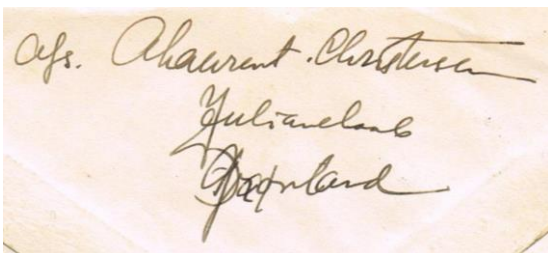 Afs. A. Laurent-Christensen
Julianehaab
Grønland